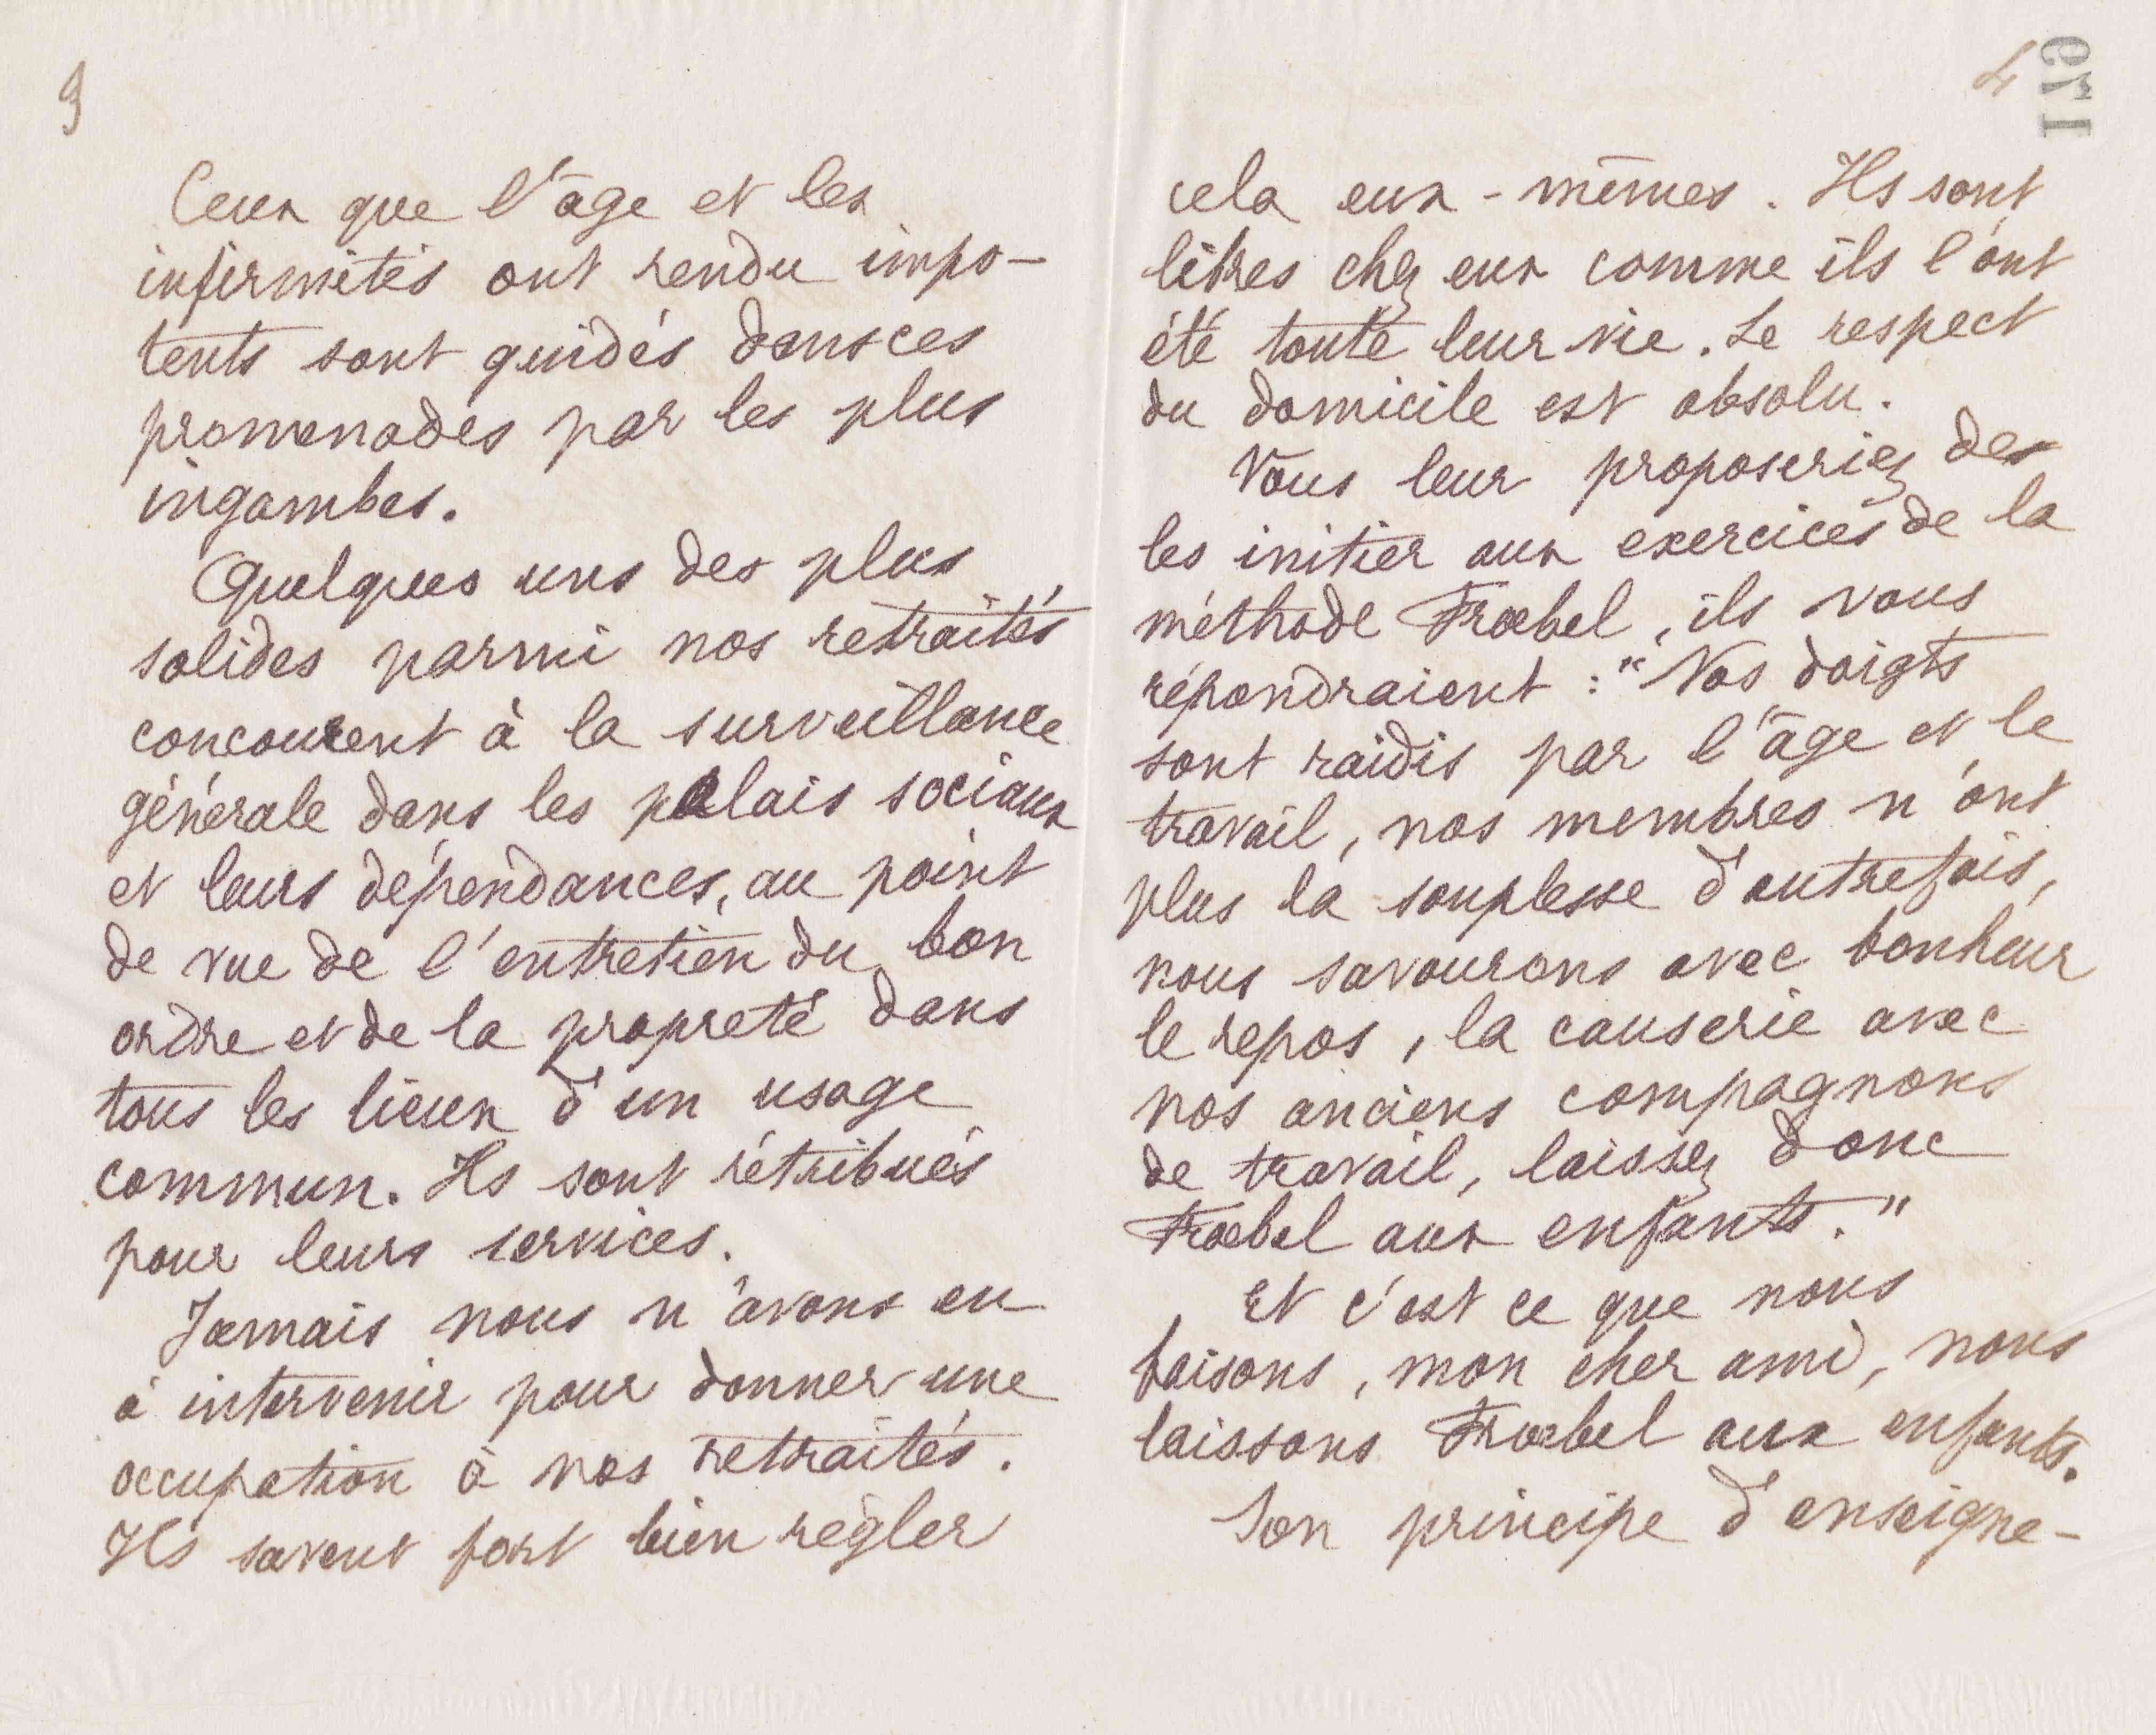 3
Ceux que l'âge et les
infirmités ont rendu impo-
tents sont guidés dans ces
promenades par les plus
ingambes.
Quelques uns des plus
solides parmi nos retraités
concourent à la surveillance
générale dans les palais sociaux
et leurs dépendances, au point
de vue de l'entretien du bon
ordre et de la propreté dans
tous les lieux d'un usage
commun. Ils sont rétribués
pour leurs services.
Jamais nous n'avons eu
à intervenir pour donner une
occupation à nos retraités.
Ils savent fort bien régler
4
179
cela eux-mêmes. Ils sont
libres chez eux comme ils l'ont
été toute leur vie. Le respect
du domicile est absolu.
Vous leur proposeriez de
les initier aux exercices de la
méthode Froebel, ils vous
répondraient : "Nos doigts
sont raidis par l'âge et le
travail, nos membres n'ont
plus la souplesse d'autrefois,
nous savourons avec bonheur
le repos, la causerie avec
nos anciens compagnons
de travail, laissez donc
Froebel aux enfants."
Et c'est ce que nous
faisons, mon cher ami, nous
laissons Froebel aux enfants.
Son principe d'enseigne-